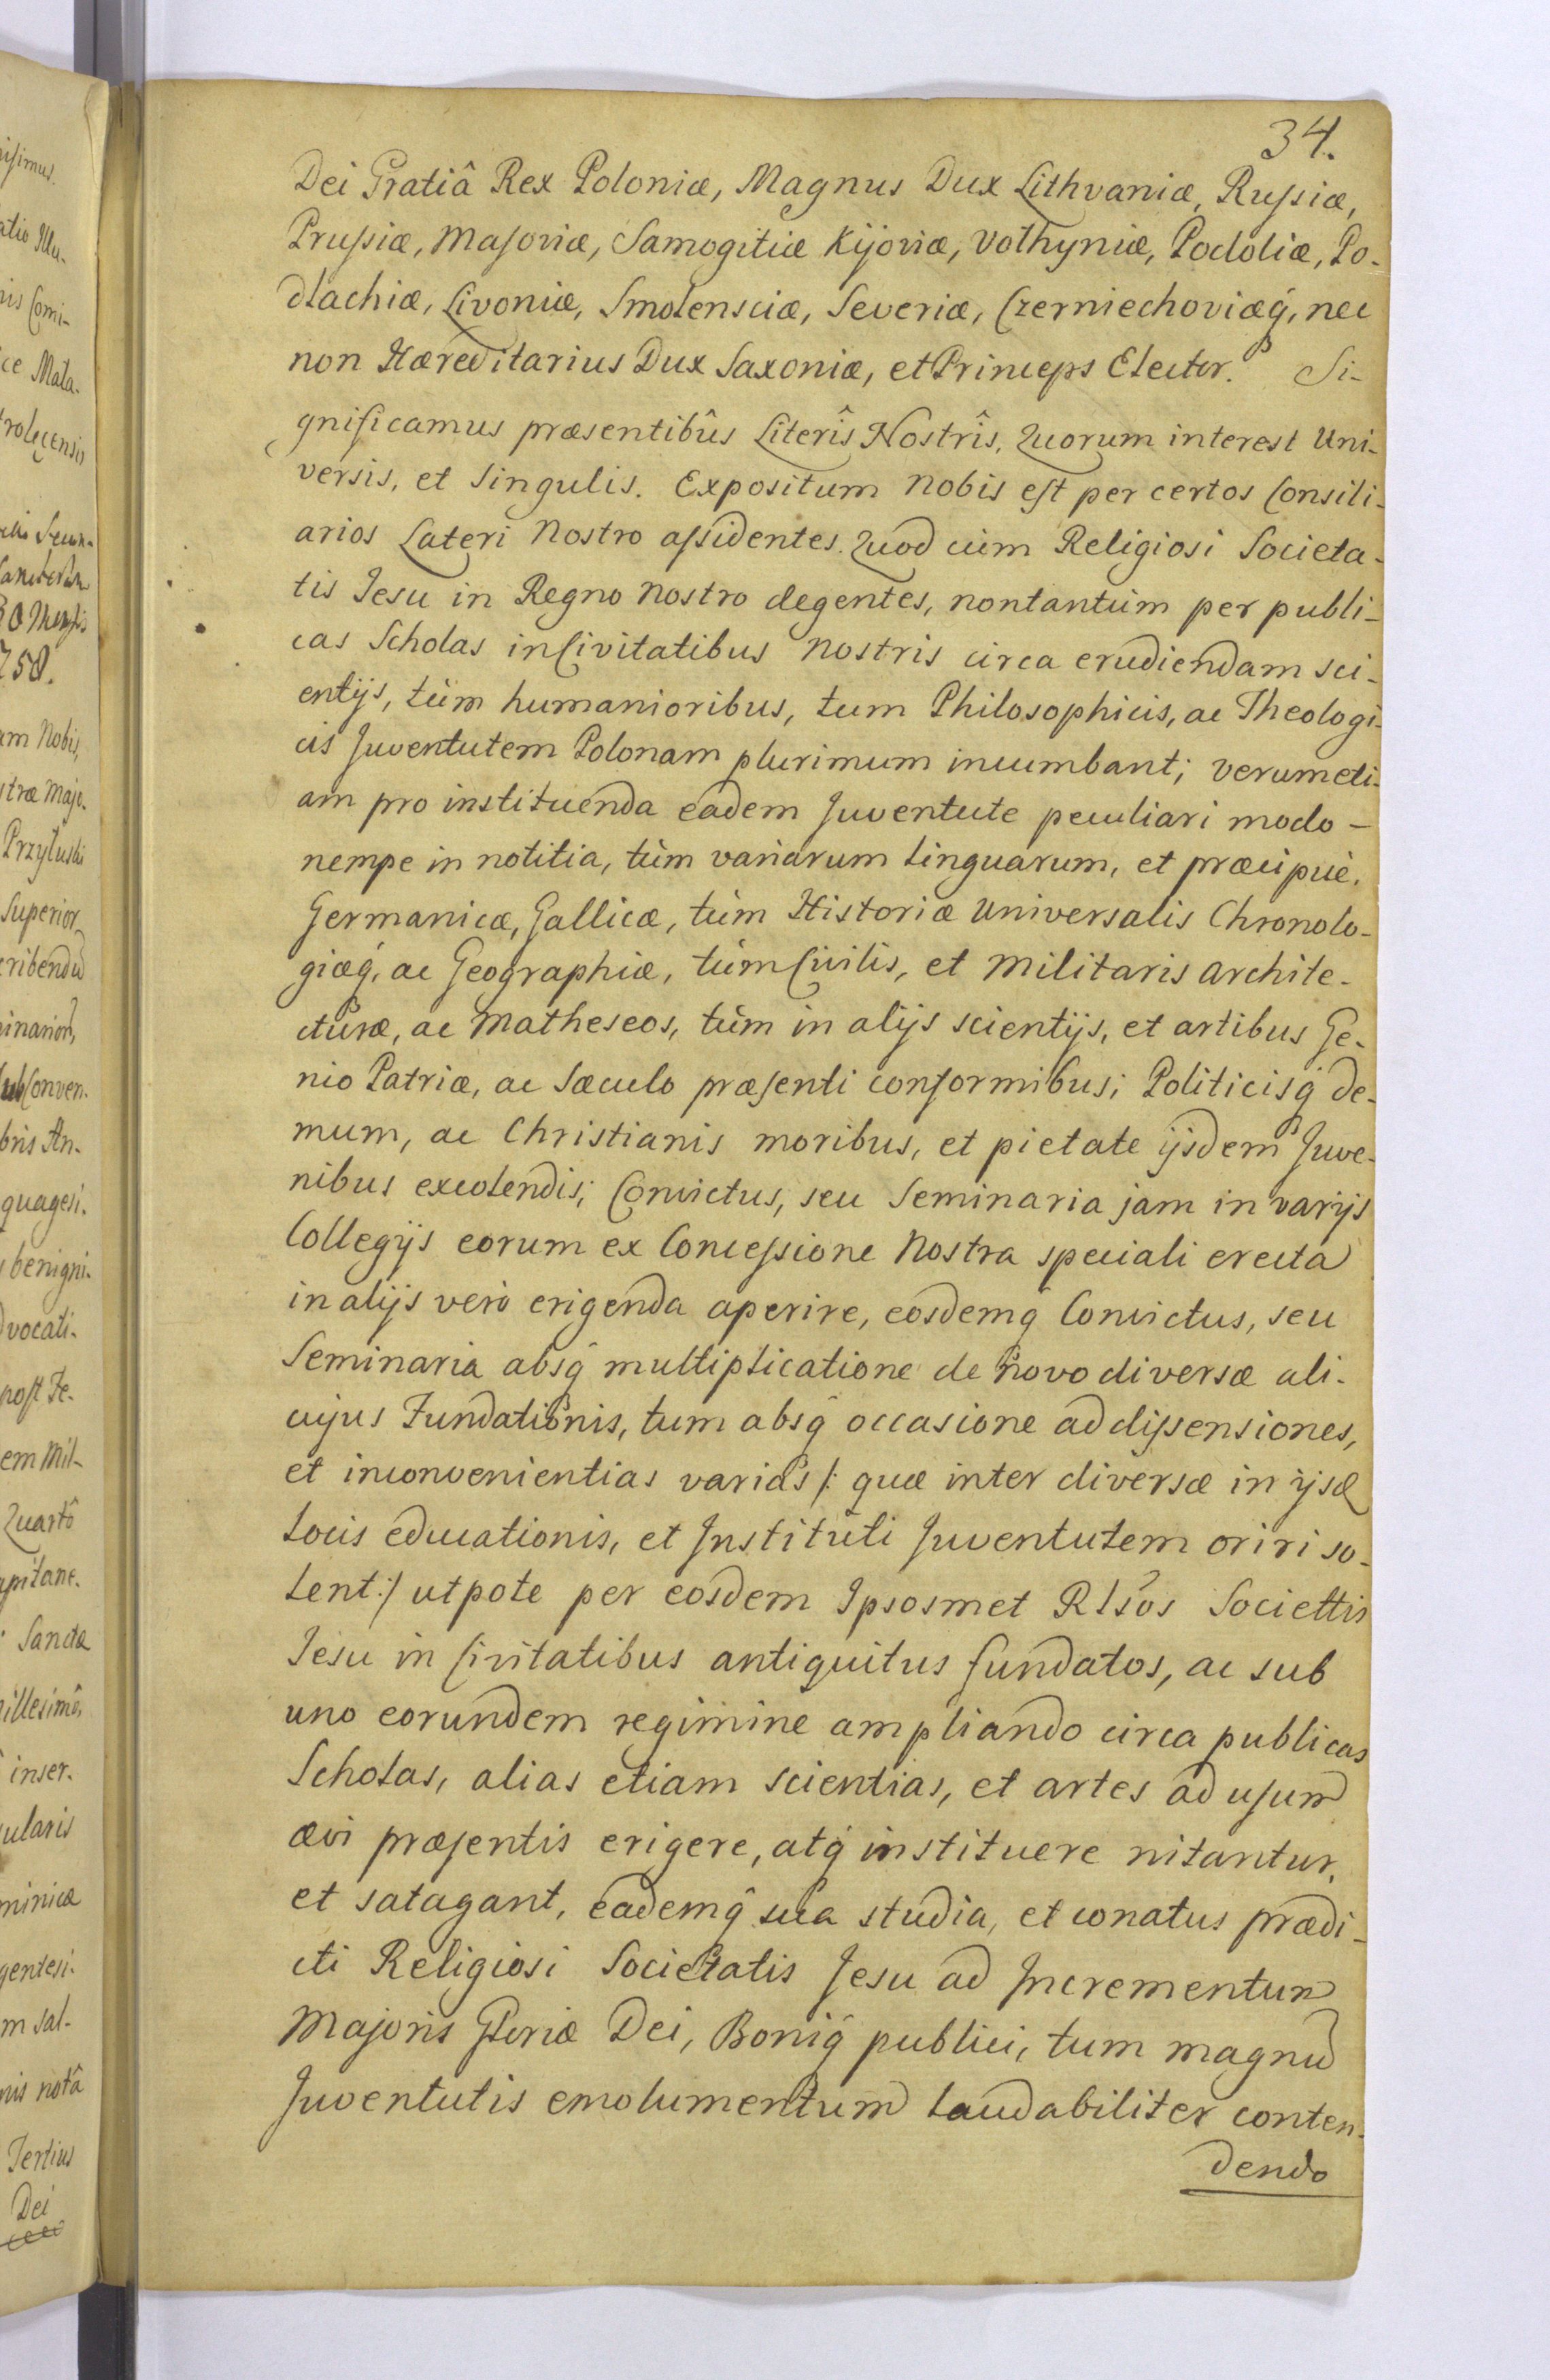 34.
Dei Gratiâ Rex Poloniæ, Magnus Dux Lithvaniæ, Rußiæ,
Prußiæ, Masoviæ, Samogitiæ Kijoviæ, Volhyniæ, Podoliæ, Po-
dlachiæ, Livoniæ, Smolensciæ, Severiæ, Czerniechoviæq́, nec
non Hæreditarius Dux Saxoniæ, et Princeps Elector. Si-
gnificamus præsentibûs Literîs Nostrîs, Quorum interest Uni-
versis, et Singulis. Expositum Nobis est per certos Consili-
arios Lateri Nostro aßidentes. Quod cùm Religiosi Societa-
tis Jesu in Regno Nostro degentes, nontantùm per publi-
cas Scholas in Civitatibus Nostris circa erudiendam sci-
entijs, tùm humanioribus, tum Philosophicis, ac Theologi-
cis Juventutem Polonam plurimum incumbant; verumeti-
am pro instituenda eadem Juventute peculiari modo -
nempe in notitia, tùm variarum Linguarum, et præcipuè,
Germanicæ, Gallicæ, tùm Historiæ Universalis Chronolo-
giæq́, ac Geographiæ, tùm Civilis, et Militaris Archite-
cturæ, ac Matheseos, tùm in alijs scientijs, et artibus Ge-
nio Patriæ, ac Sæculo præsenti conformibus; Politicisq́ de-
mum, ac Christianis moribus, et pietate ijsdem Juve-
nibus excolendis; Convictus, seu Seminaria jam in varijs
Collegijs eorum ex Conceßione Nostra speciali erecta
in alijs verò erigenda aperire, eosdemq́ Convictus, seu
Seminaria absq́ multiplicatione de novo diversæ ali-
cujus Fundationis, tum absq́ occasione ad dißensiones,
et inconvenientias varias /: quæ inter diversæ in ijsd
Locis educationis, et Instituti Juventutem oriri so-
lent :/ utpote per eosdem Ipsosmet Rlsos Societtis
Jesu in Civitatibus antiquitus fundatos, ac sub
uno eorundem regimine ampliando circa publicas
Scholas, alias etiam scientias, et artes ad usum
ævi præsentis erigere, atq́ instituere nitantur,
et satagant, eademq́ sua studia, et conatus prædi-
cti Religiosi Societatis Jesu ad Incrementum
Majoris Gloriæ Dei, Boniq́ publici, tum magnu
Juventutis emolumentum laudabiliter conten-
dendo